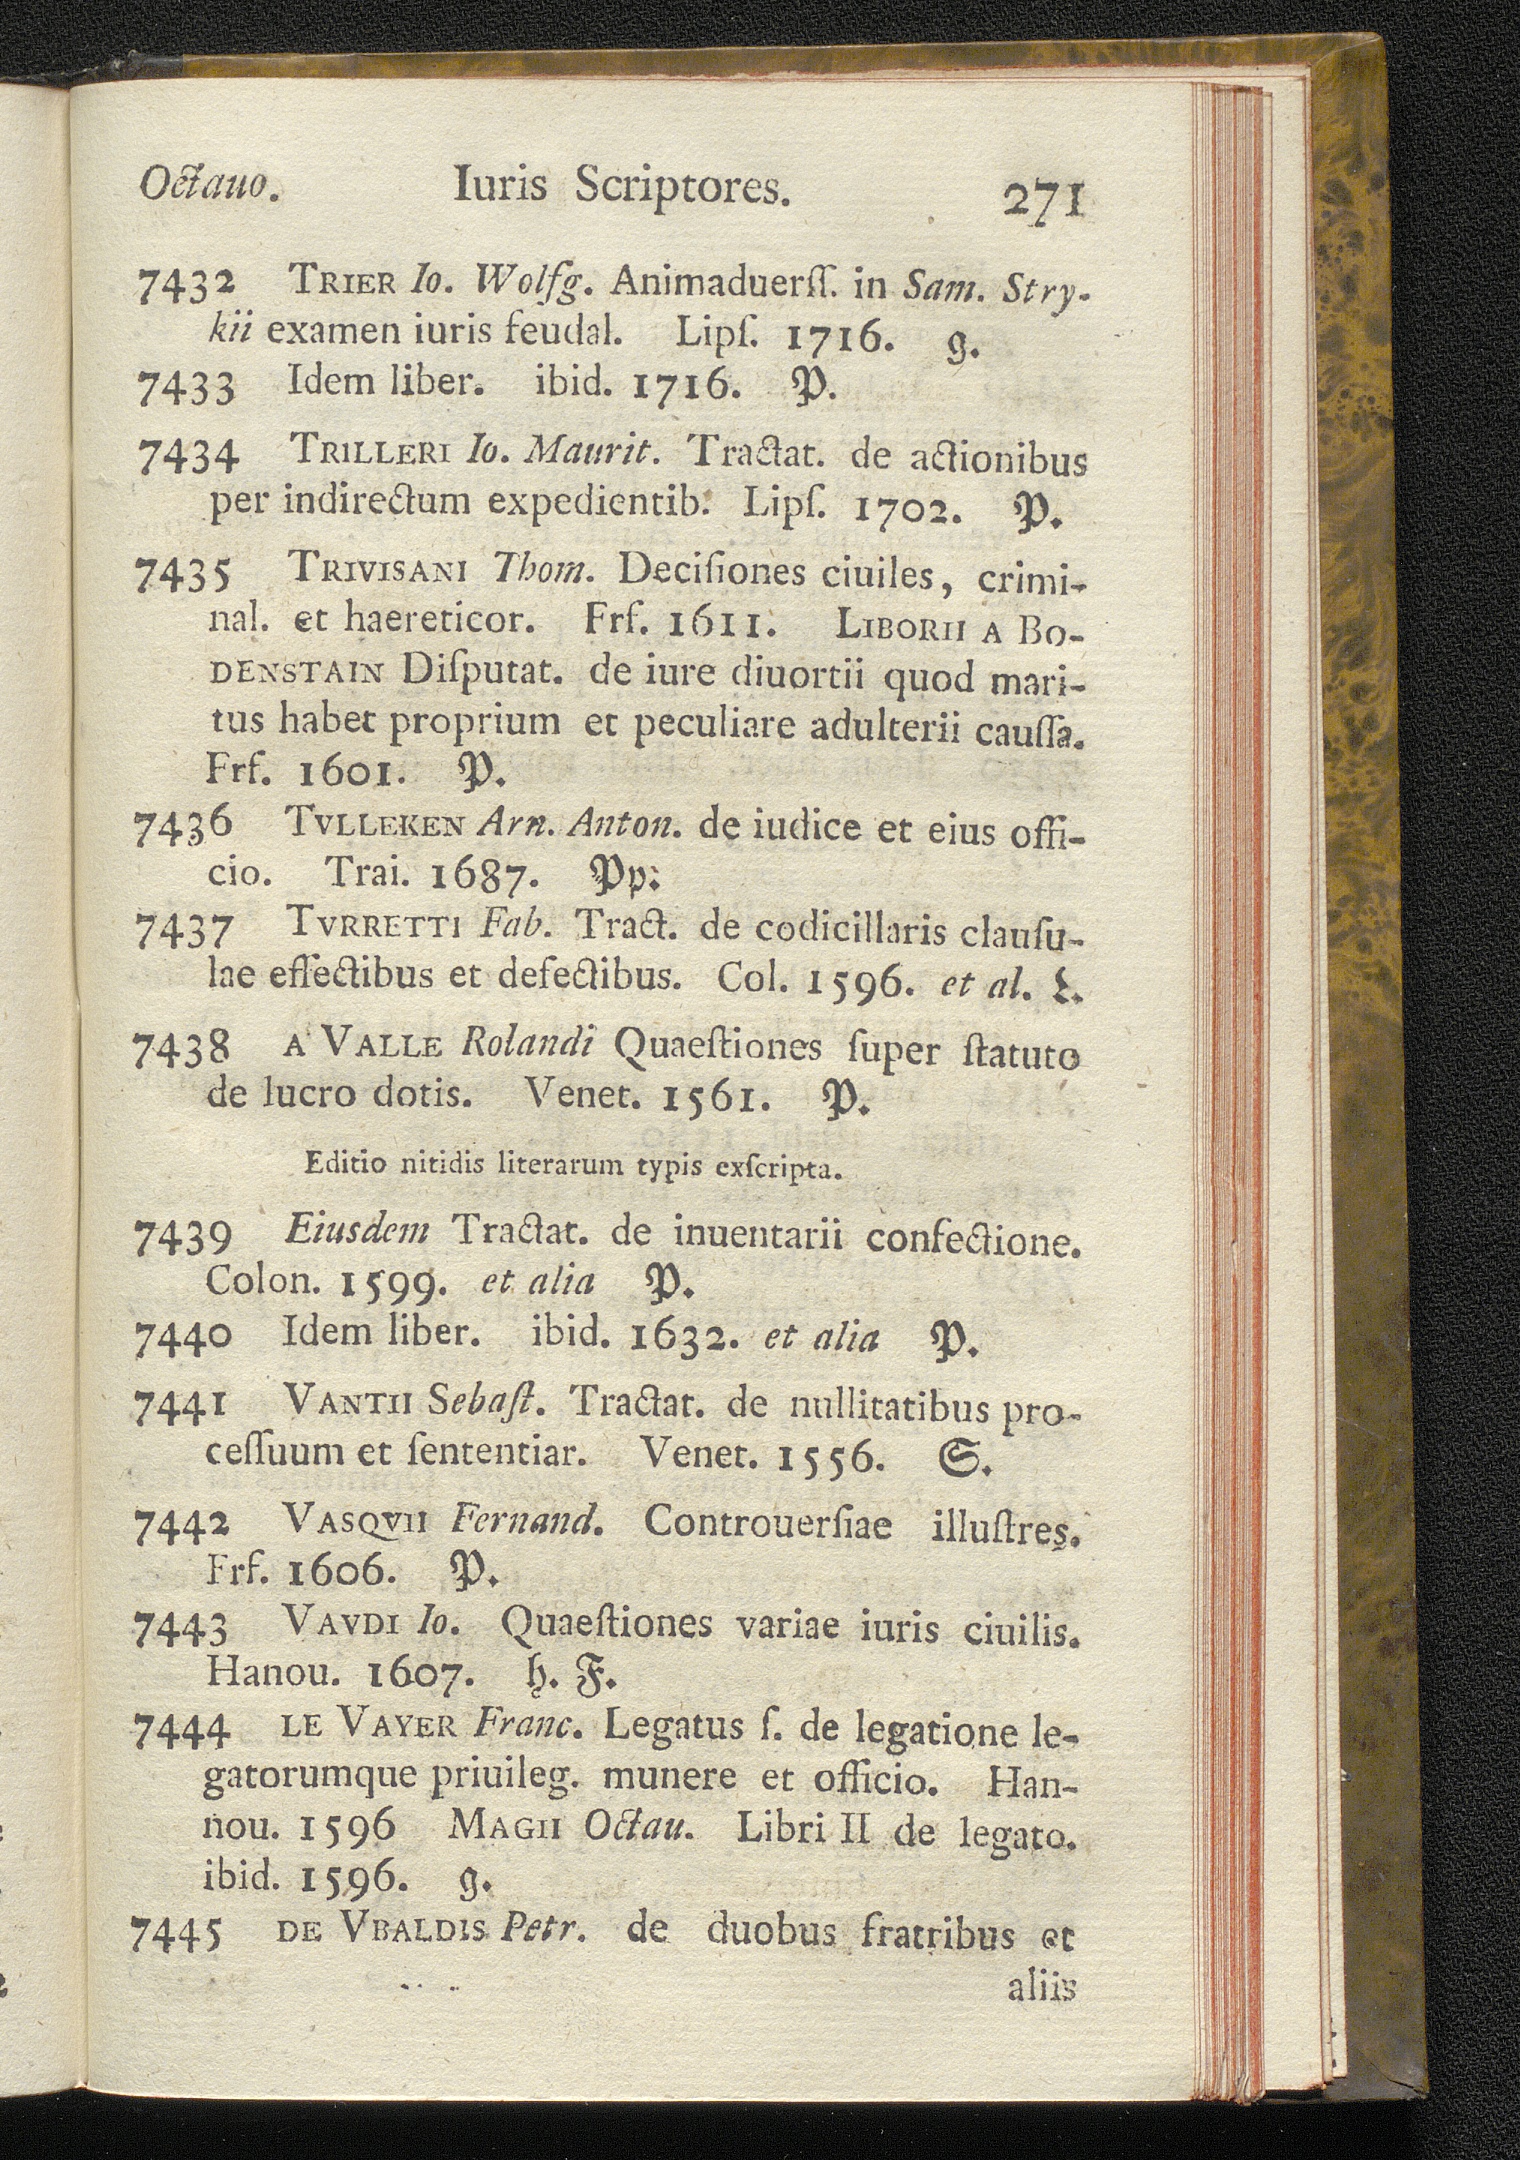 Octauo. Iuris Scriptores. 271
7432 TRIER Io. Wolfg. Animaduerſſ. in Sam. Stry-
kii examen iuris feudal. Lipſ. 1716. g.
7433 Idem liber. ibid. 1716. P.
7434 TRILLERI Io. Maurit. Tractat. de actionibus
per indirectum expedientib. Lipſ. 1702. P.
7435 TRIVISANI Thom. Deciſiones ciuiles, crimi-
nal. et haereticor. Frf. 1611. LIBORII A BO-
DENSTAIN Diſputat. de iure diuortii quod mari-
tus habet proprium et peculiare adulterii cauſſa.
Frf. 1601. P.
7436 TVLLEKEN Arn. Anton. de iudice et eius offi-
cio. Trai. 1687. Pp.
7437 TVRRETTI Fab. Tract. de codicillaris clauſu-
lae effectibus et defectibus. Col. 1596. et al. L.
7438 A VALLE Rolandi Quaeſtiones ſuper ſtatuto
de lucro dotis. Venet. 1561. P.
Editio nitidis literarum typis exſcripta.
7439 Eiusdem Tractat. de inuentarii confectione.
Colon. 1599. et alia P.
7440 Idem liber. ibid. 1632. et alia P.
7441 VANTII Sebaſt. Tractat. de nullitatibus pro-
ceſſuum et ſententiar. Venet. 1556. S.
7442 VASQVII Fernand. Controuerſiae illuſtres.
Frf. 1606. P.
7443 VAVDI Io. Quaeſtiones variae iuris ciuilis.
Hanou. 1607. h. F.
7444 LE VAYER Franc. Legatus ſ. de legatione le-
gatorumque priuileg. munere et officio. Han-
nou. 1596 MAGII Octau. Libri II de legato.
ibid. 1596. g.
7445 DE VBALDIS Petr. de duobus fratribus et
aliis